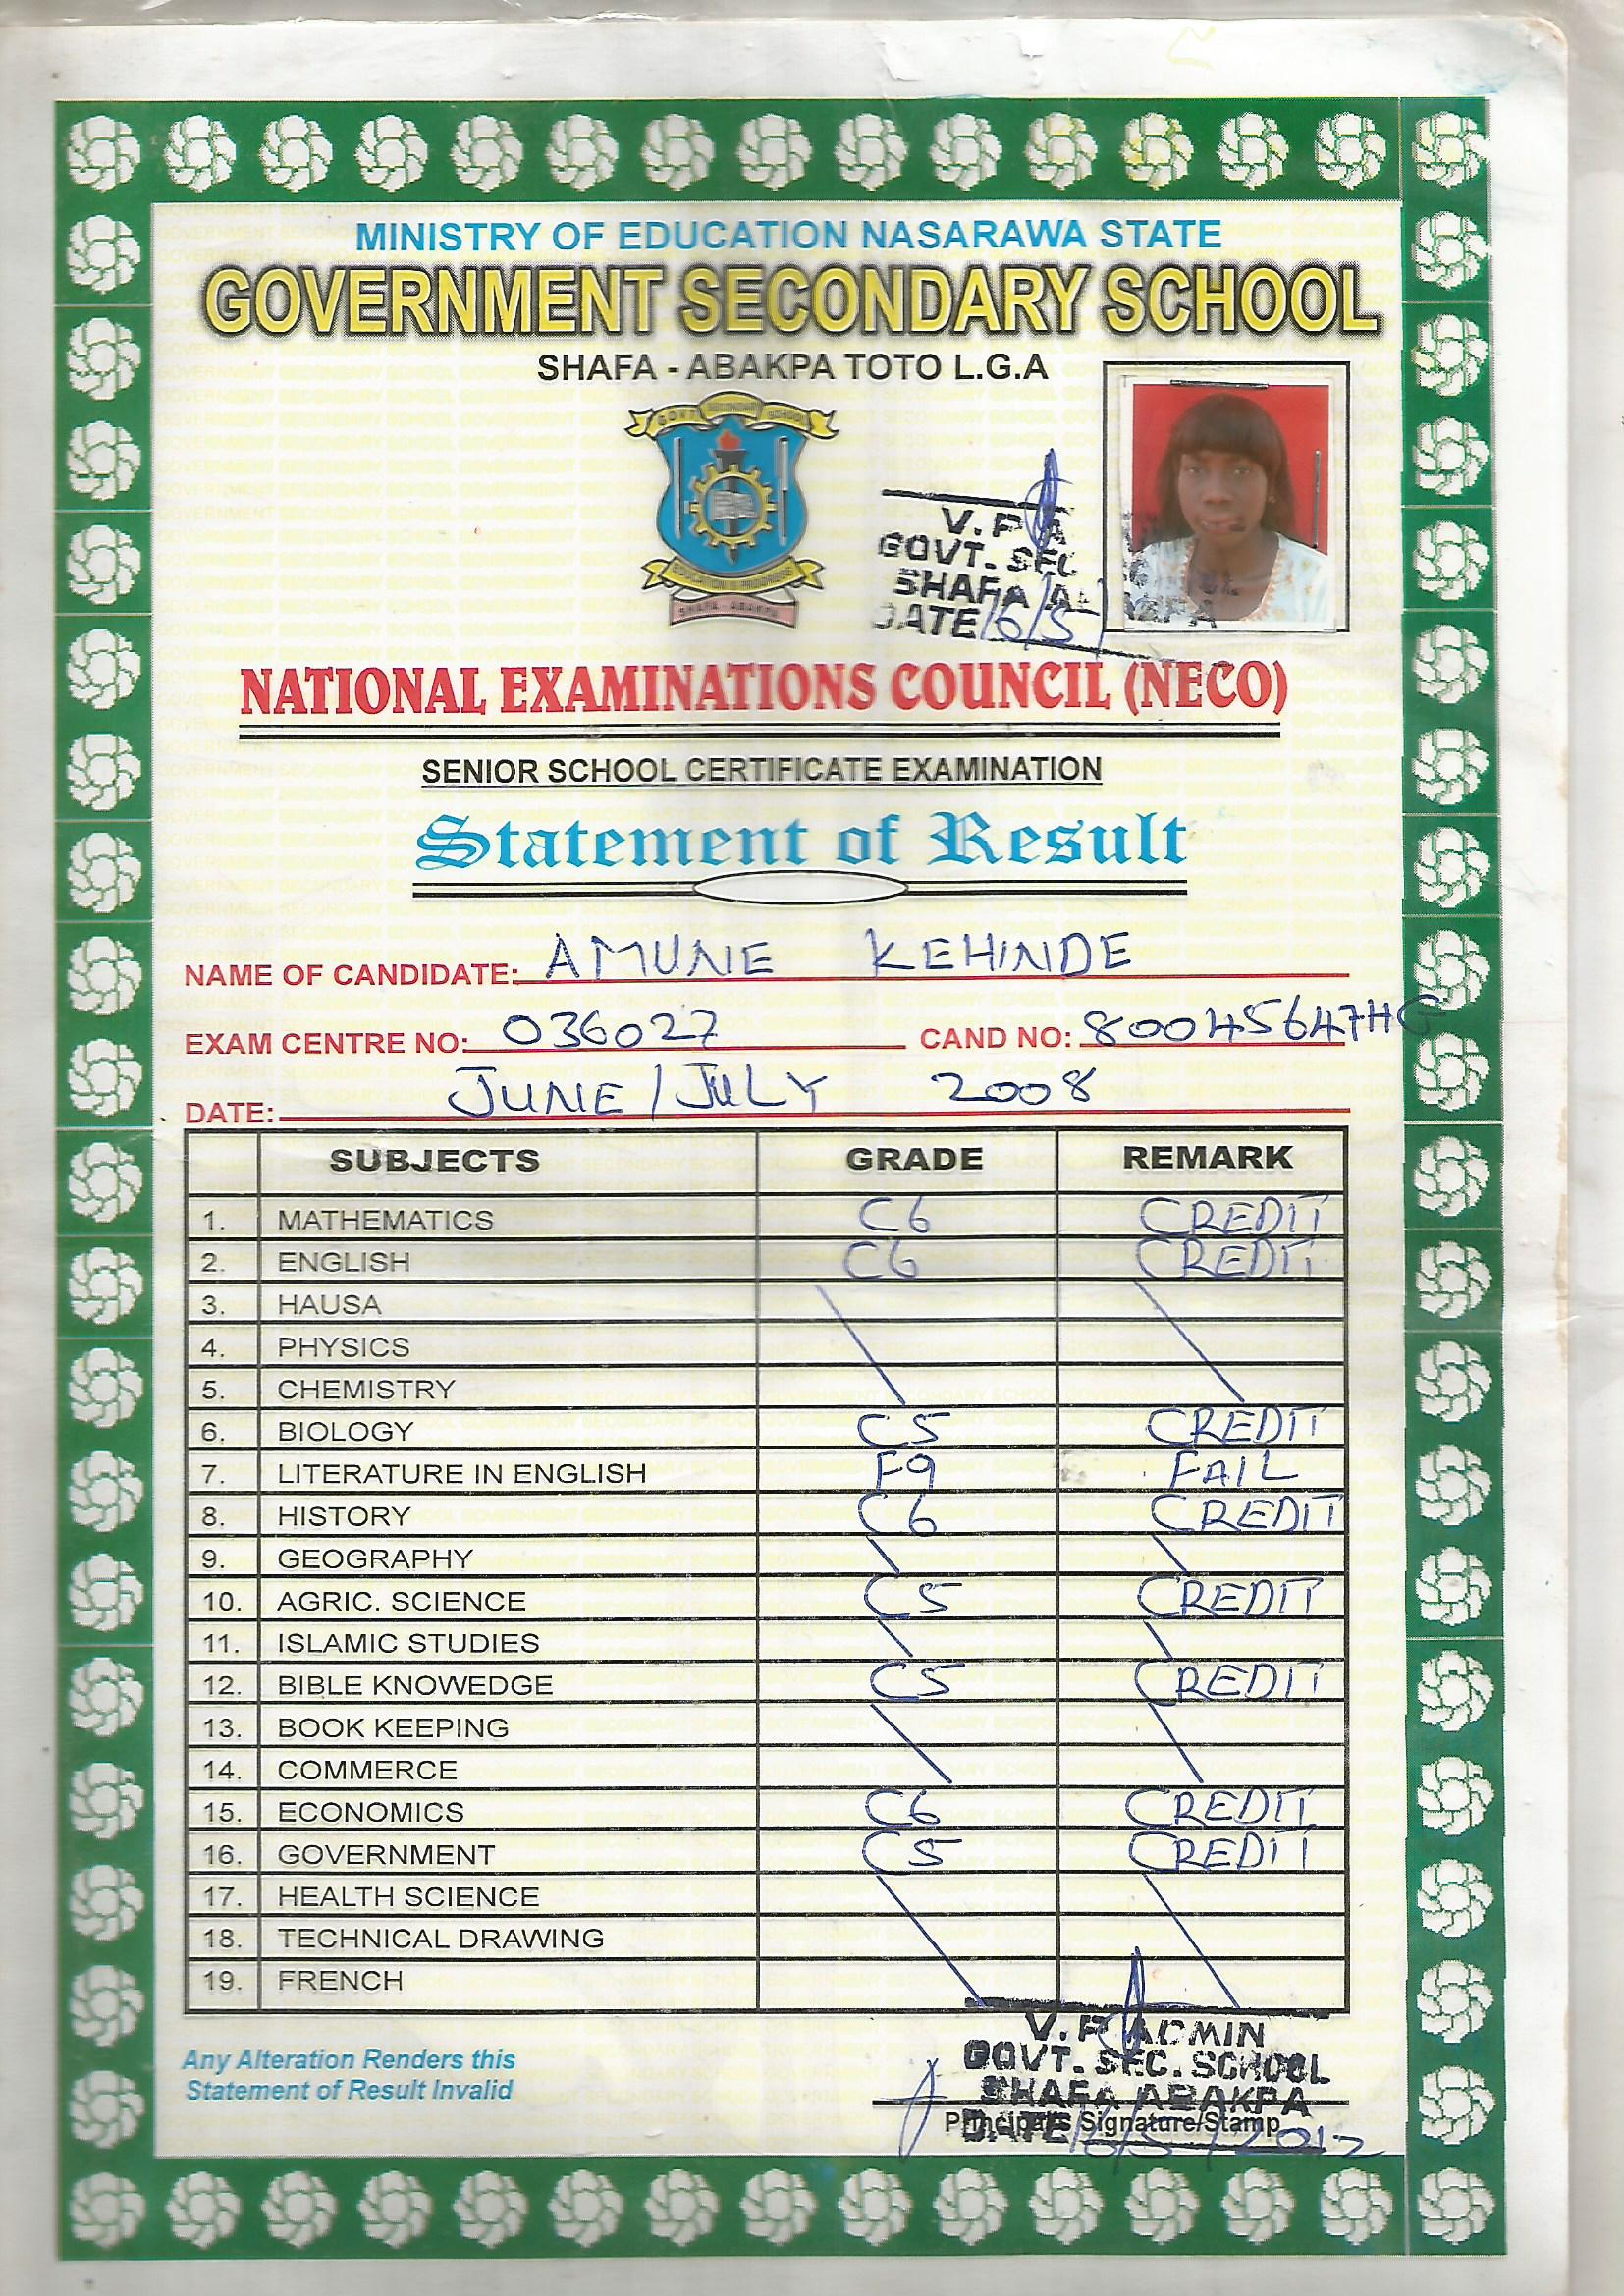 MINISTRY OF EDUCATION NASARAWA STATE
GOVERNMENT SECONDARY SCHOOL
SHAFA - ABAKPA TOTO L.G.A
GOVT SECONDARY SCHOOL
SHAFA - ABAKPA
V. P A
GOVT. SEC
SHAFA
DATE 16/5/
NATIONAL EXAMINATIONS COUNCIL (NECO)
SENIOR SCHOOL CERTIFICATE EXAMINATION
Statement of Result
NAME OF CANDIDATE: AMUNE KEHINDE
EXAM CENTRE NO: 036027 CAND NO: 80045647HG
DATE: JUNE/JULY 2008
SUBJECTS GRADE REMARK
1. MATHEMATICS C6 CREDIT
2. ENGLISH C6 CREDIT
3. HAUSA
4. PHYSICS
5. CHEMISTRY
6. BIOLOGY C5 CREDIT
7. LITERATURE IN ENGLISH F9 FAIL
8. HISTORY C6 CREDIT
9. GEOGRAPHY
10. AGRIC. SCIENCE C5 CREDIT
11. ISLAMIC STUDIES
12. BIBLE KNOWEDGE C5 CREDIT
13. BOOK KEEPING
14. COMMERCE
15. ECONOMICS C6 CREDIT
16. GOVERNMENT C5 CREDIT
17. HEALTH SCIENCE
18. TECHNICAL DRAWING
19. FRENCH
Any Alteration Renders this
Statement of Result Invalid
V. P. ADMIN
GOVT. SEC. SCHOOL
SHAFA ABAKPA
Principal's Signature/Stamp
DATE 16/5/2012